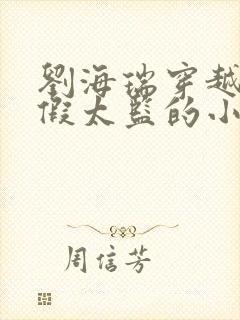 劉海瑞穿越
假太監的小
周信芳